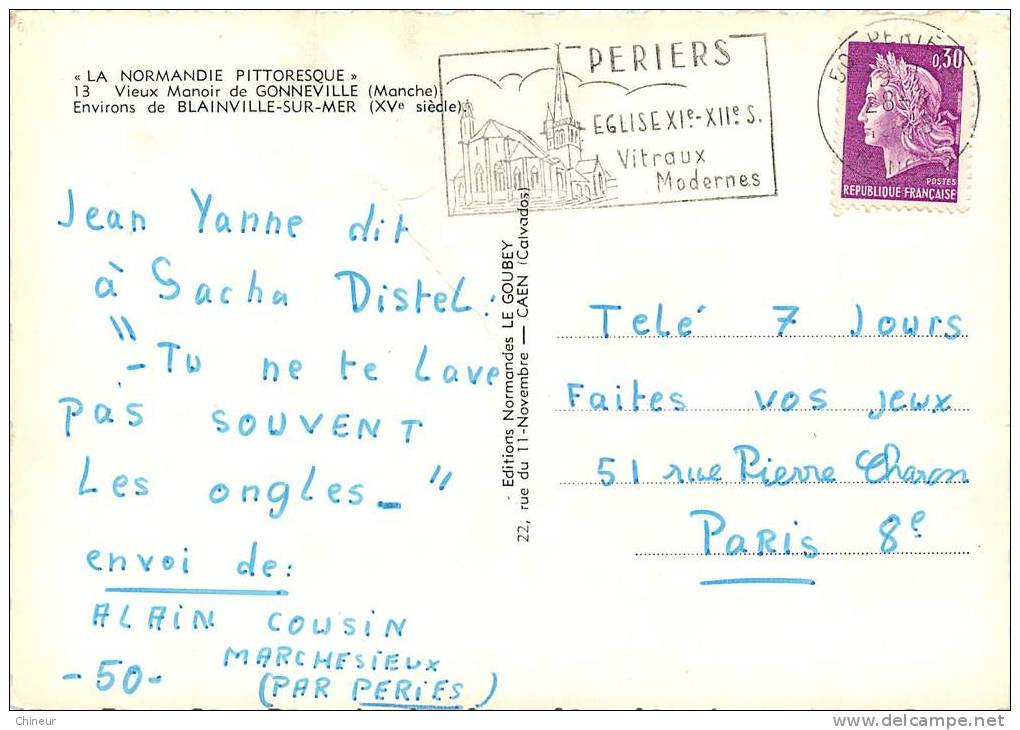 « LA NORMANDIE PITTORESQUE »
13 Vieux Manoir de GONNEVILLE (Manche)
Environs de BLAINVILLE-SUR-MER (XVe siècle).
PERIERS
EGLISE XIe-XIIe S.
Vitraux
Modernes
0,30
POSTES
REPUBLIQUE FRANÇAISE
Jean Yanne dit
à Sacha Distel :
"
- Tu ne te lave
pas SOUVENT
Les ongles - "
envoi de :
ALAIN COUSIN
MARCHESIEUX
- 50 - (PAR PERIES)
- Editions Normandes LE GOUBEY
22, rue du 11-Novembre — CAEN (Calvados)
Telé 7 Jours
Faites vos jeux
51 rue Pierre Charon
PARIS 8e
Chineur
delcampe.net